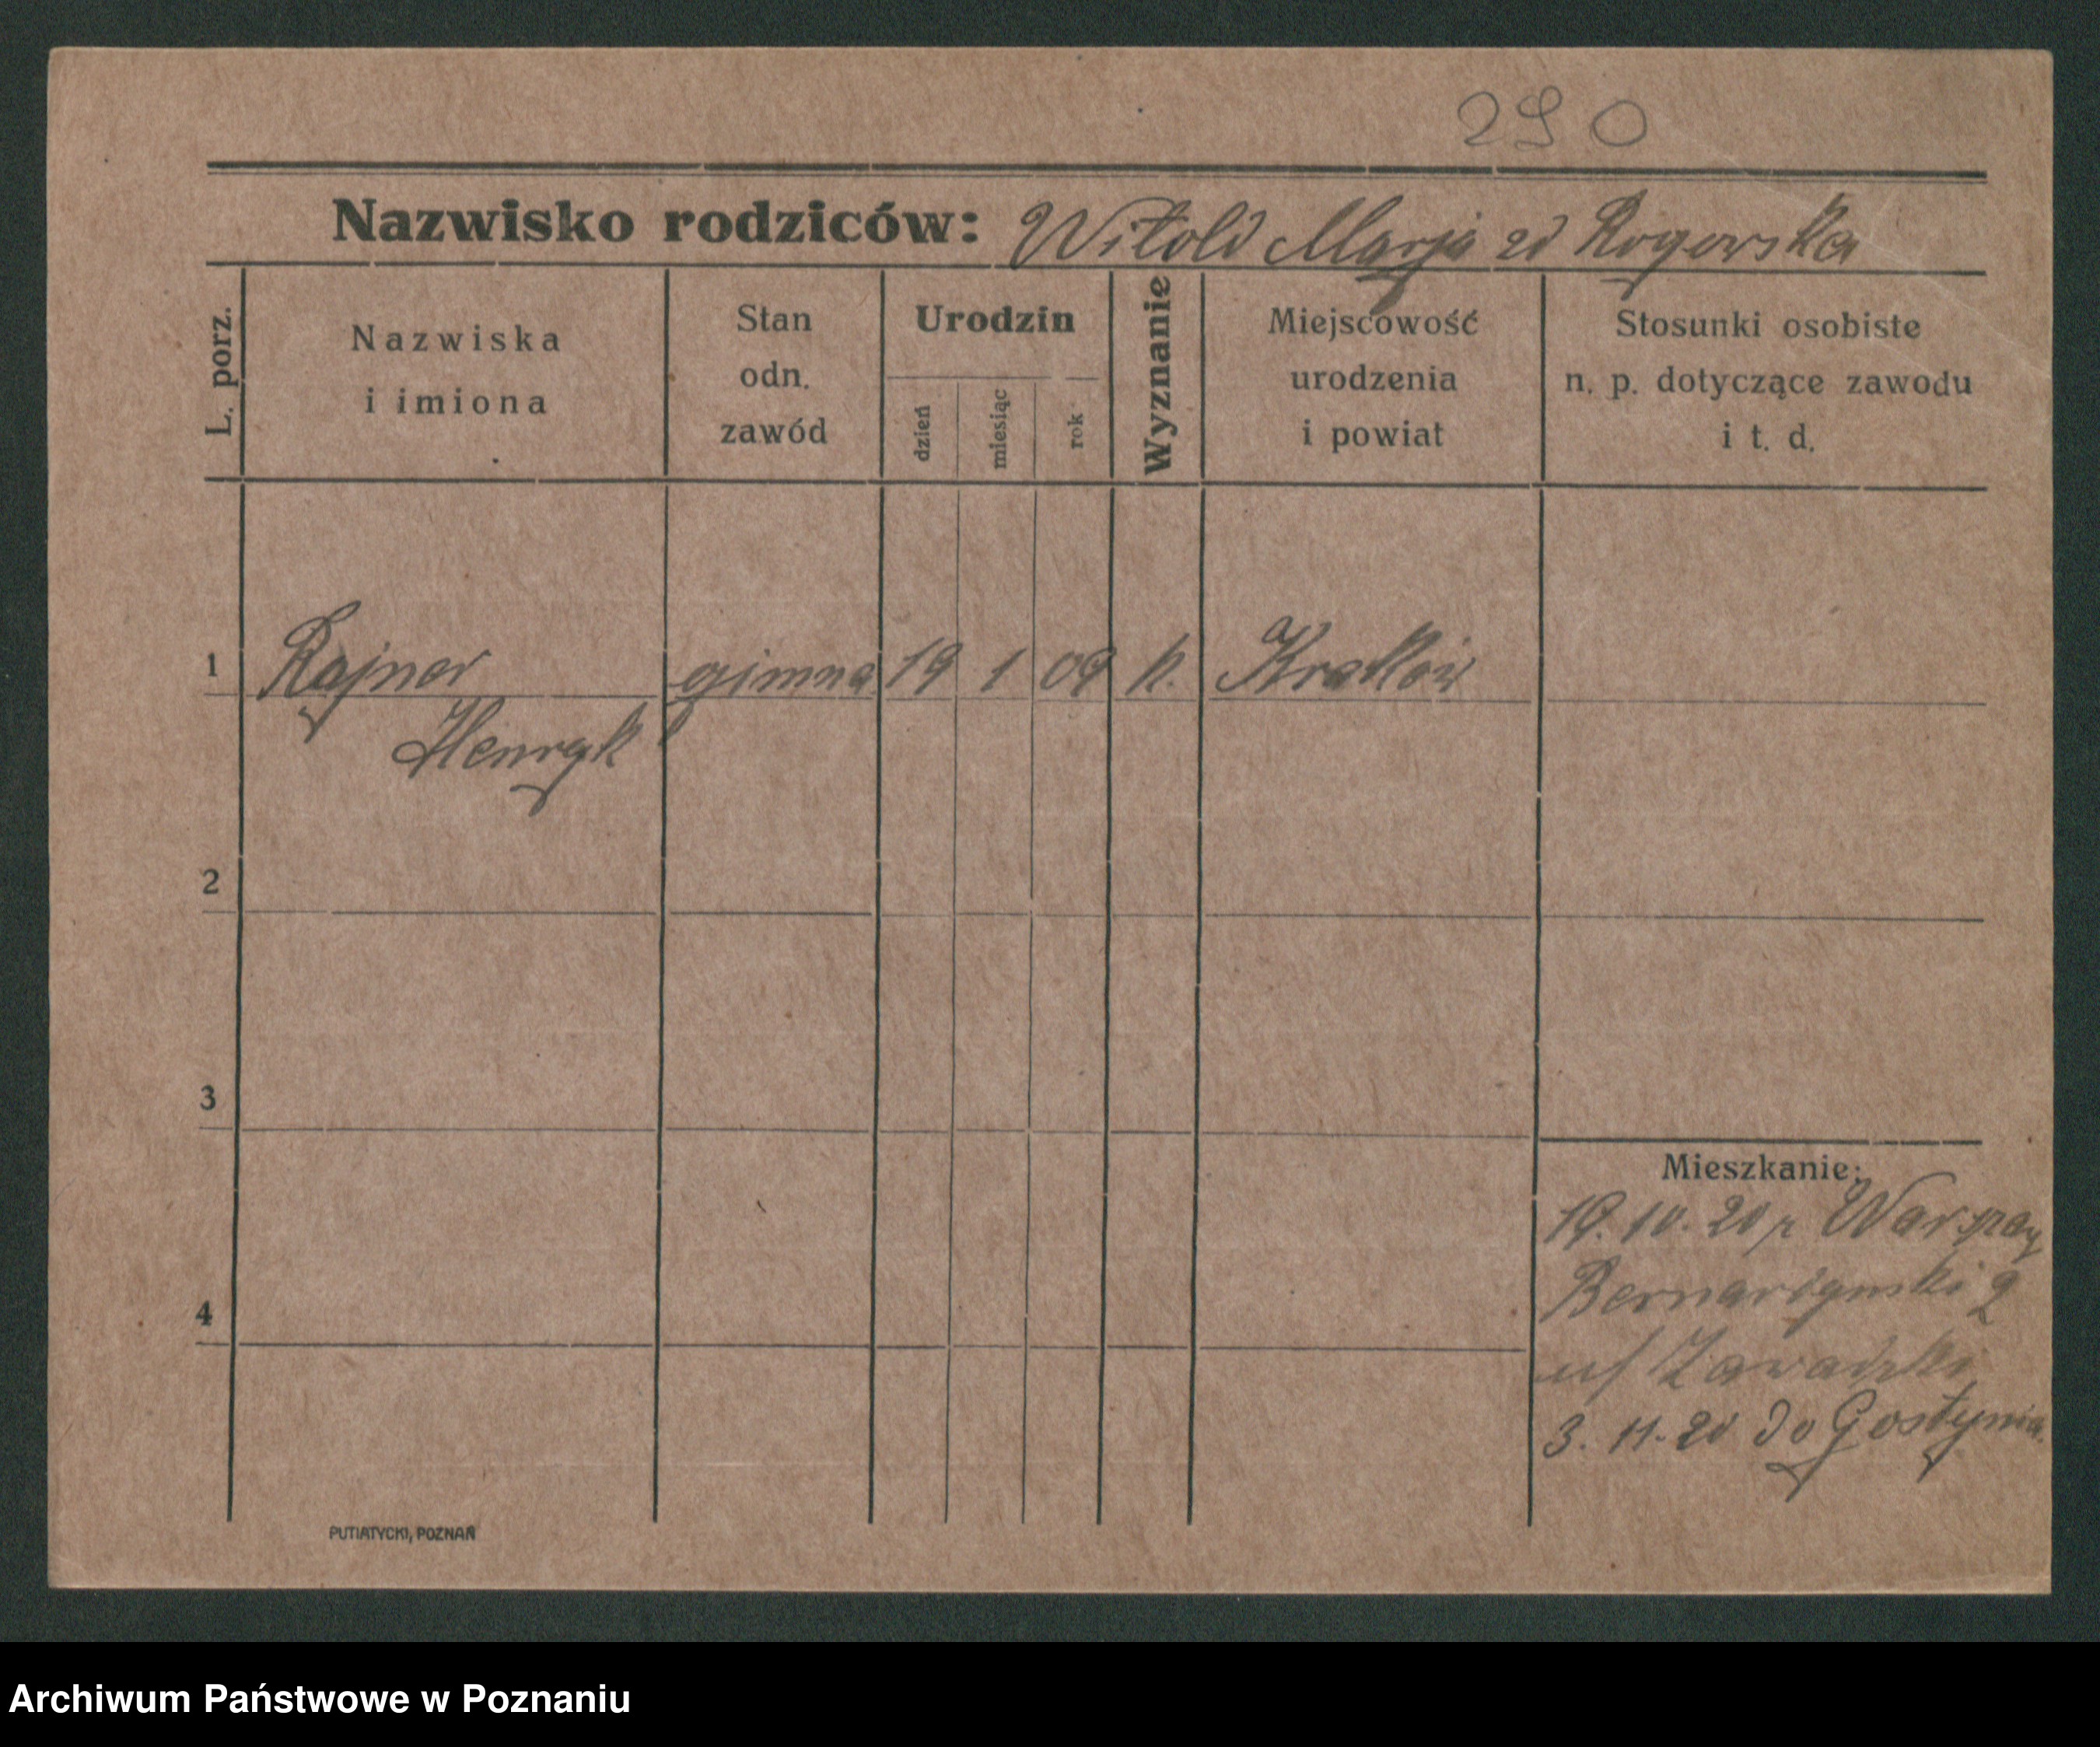 290
Nazwisko rodziców: Witold Marja zd Rogowska
L. porz.
Nazwiska
i imiona
Stan
odn.
zawód
Urodzin
dzień
miesiąc
rok
Wyznanie
Miejscowość
urodzenia
i powiat
Stosunki osobiste
n. p. dotyczące zawodu
i t. d.
1 Rajner gimna 19 1 09 k. Kraków
Henryk
2
3
4
Mieszkanie:
19. 10. 20 z Warszawy
Bernardyński 2
u/ Zawadzki
3. 11. 20 do Gostynia.
PUTIATYCKI, POZNAŃ
Archiwum Państwowe w Poznaniu